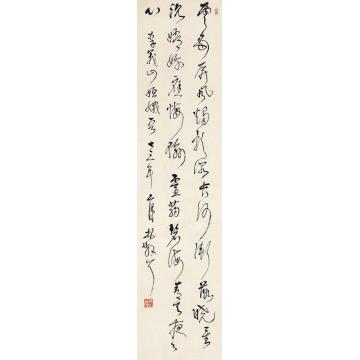 雲母屏風燭影深長河漸落曉星
沉嫦娥應悔偷靈藥碧海青天夜々
心 李義山嫦娥 七三年 林散耳